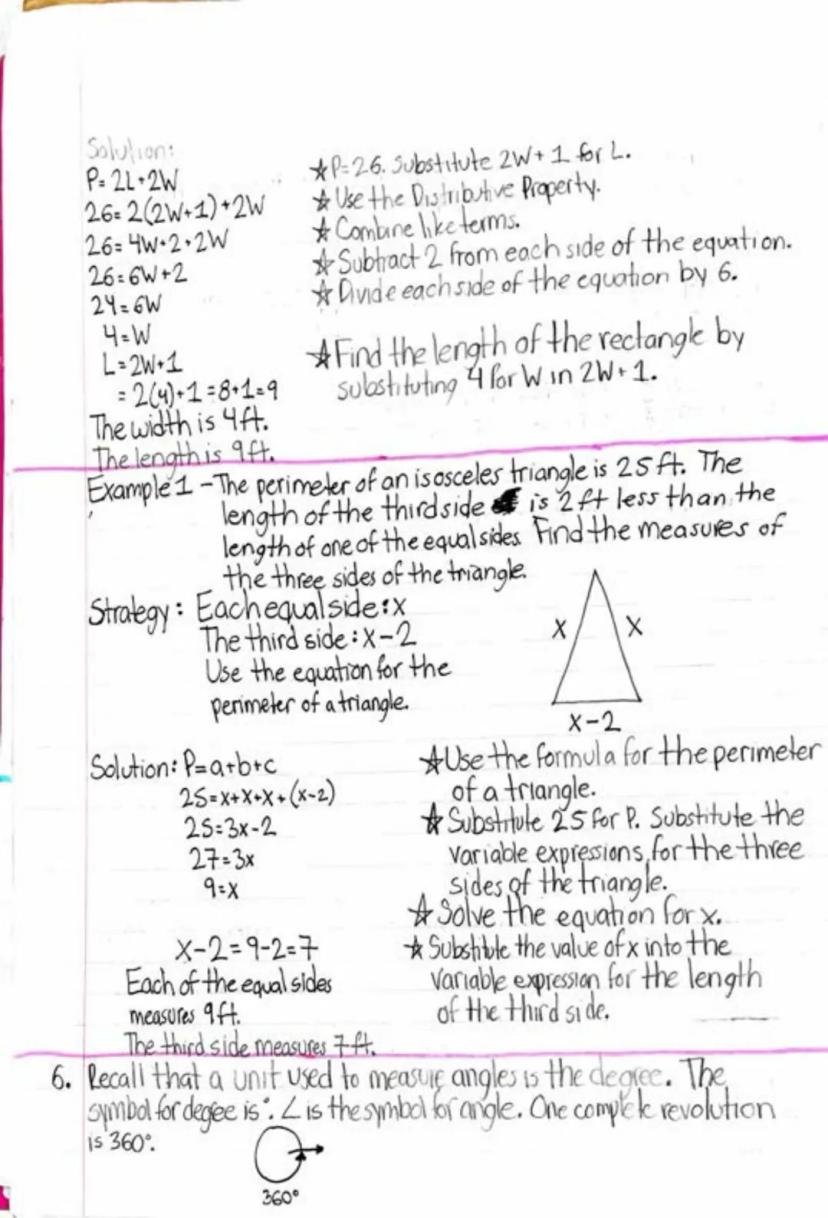 Solution:
P= 2L+2W
26= 2(2W+1)+2W
26= 4W+2+2W
26=6W+2
24=6W
4=W
L=2W+1
= 2(4)+1=8+1=9
The width is 4ft.
The length is 9ft.
☆P=26. Substitute 2W+1 for L.
☆Use the Distributive Property.
☆Combine like terms.
☆Subtract 2 from each side of the equation.
☆Divide each side of the equation by 6.
☆Find the length of the rectangle by
substituting 4 for W in 2W+1.
Example 1 -The perimeter of an isosceles triangle is 25ft. The
length of the third side is 2ft less than the
length of one of the equal sides. Find the measures of
the three sides of the triangle.
Strategy: Each equal side:x
The third side:x-2
Use the equation for the
perimeter of a triangle.
x x
x-2
Solution: P=a+b+c
25=x+x+x+(x-2)
25=3x-2
27=3x
9=x
x-2=9-2=7
Each of the equal sides
measures 9ft.
The third side measures 7ft.
☆Use the formula for the perimeter
of a triangle.
☆Substitute 25 for P. Substitute the
variable expressions for the three
sides of the triangle.
☆Solve the equation for x.
☆Substitute the value of x into the
variable expression for the length
of the third side.
6. Recall that a unit used to measure angles is the degree. The
symbol for degree is °. ∠ is the symbol for angle. One complete revolution
is 360°.
360°